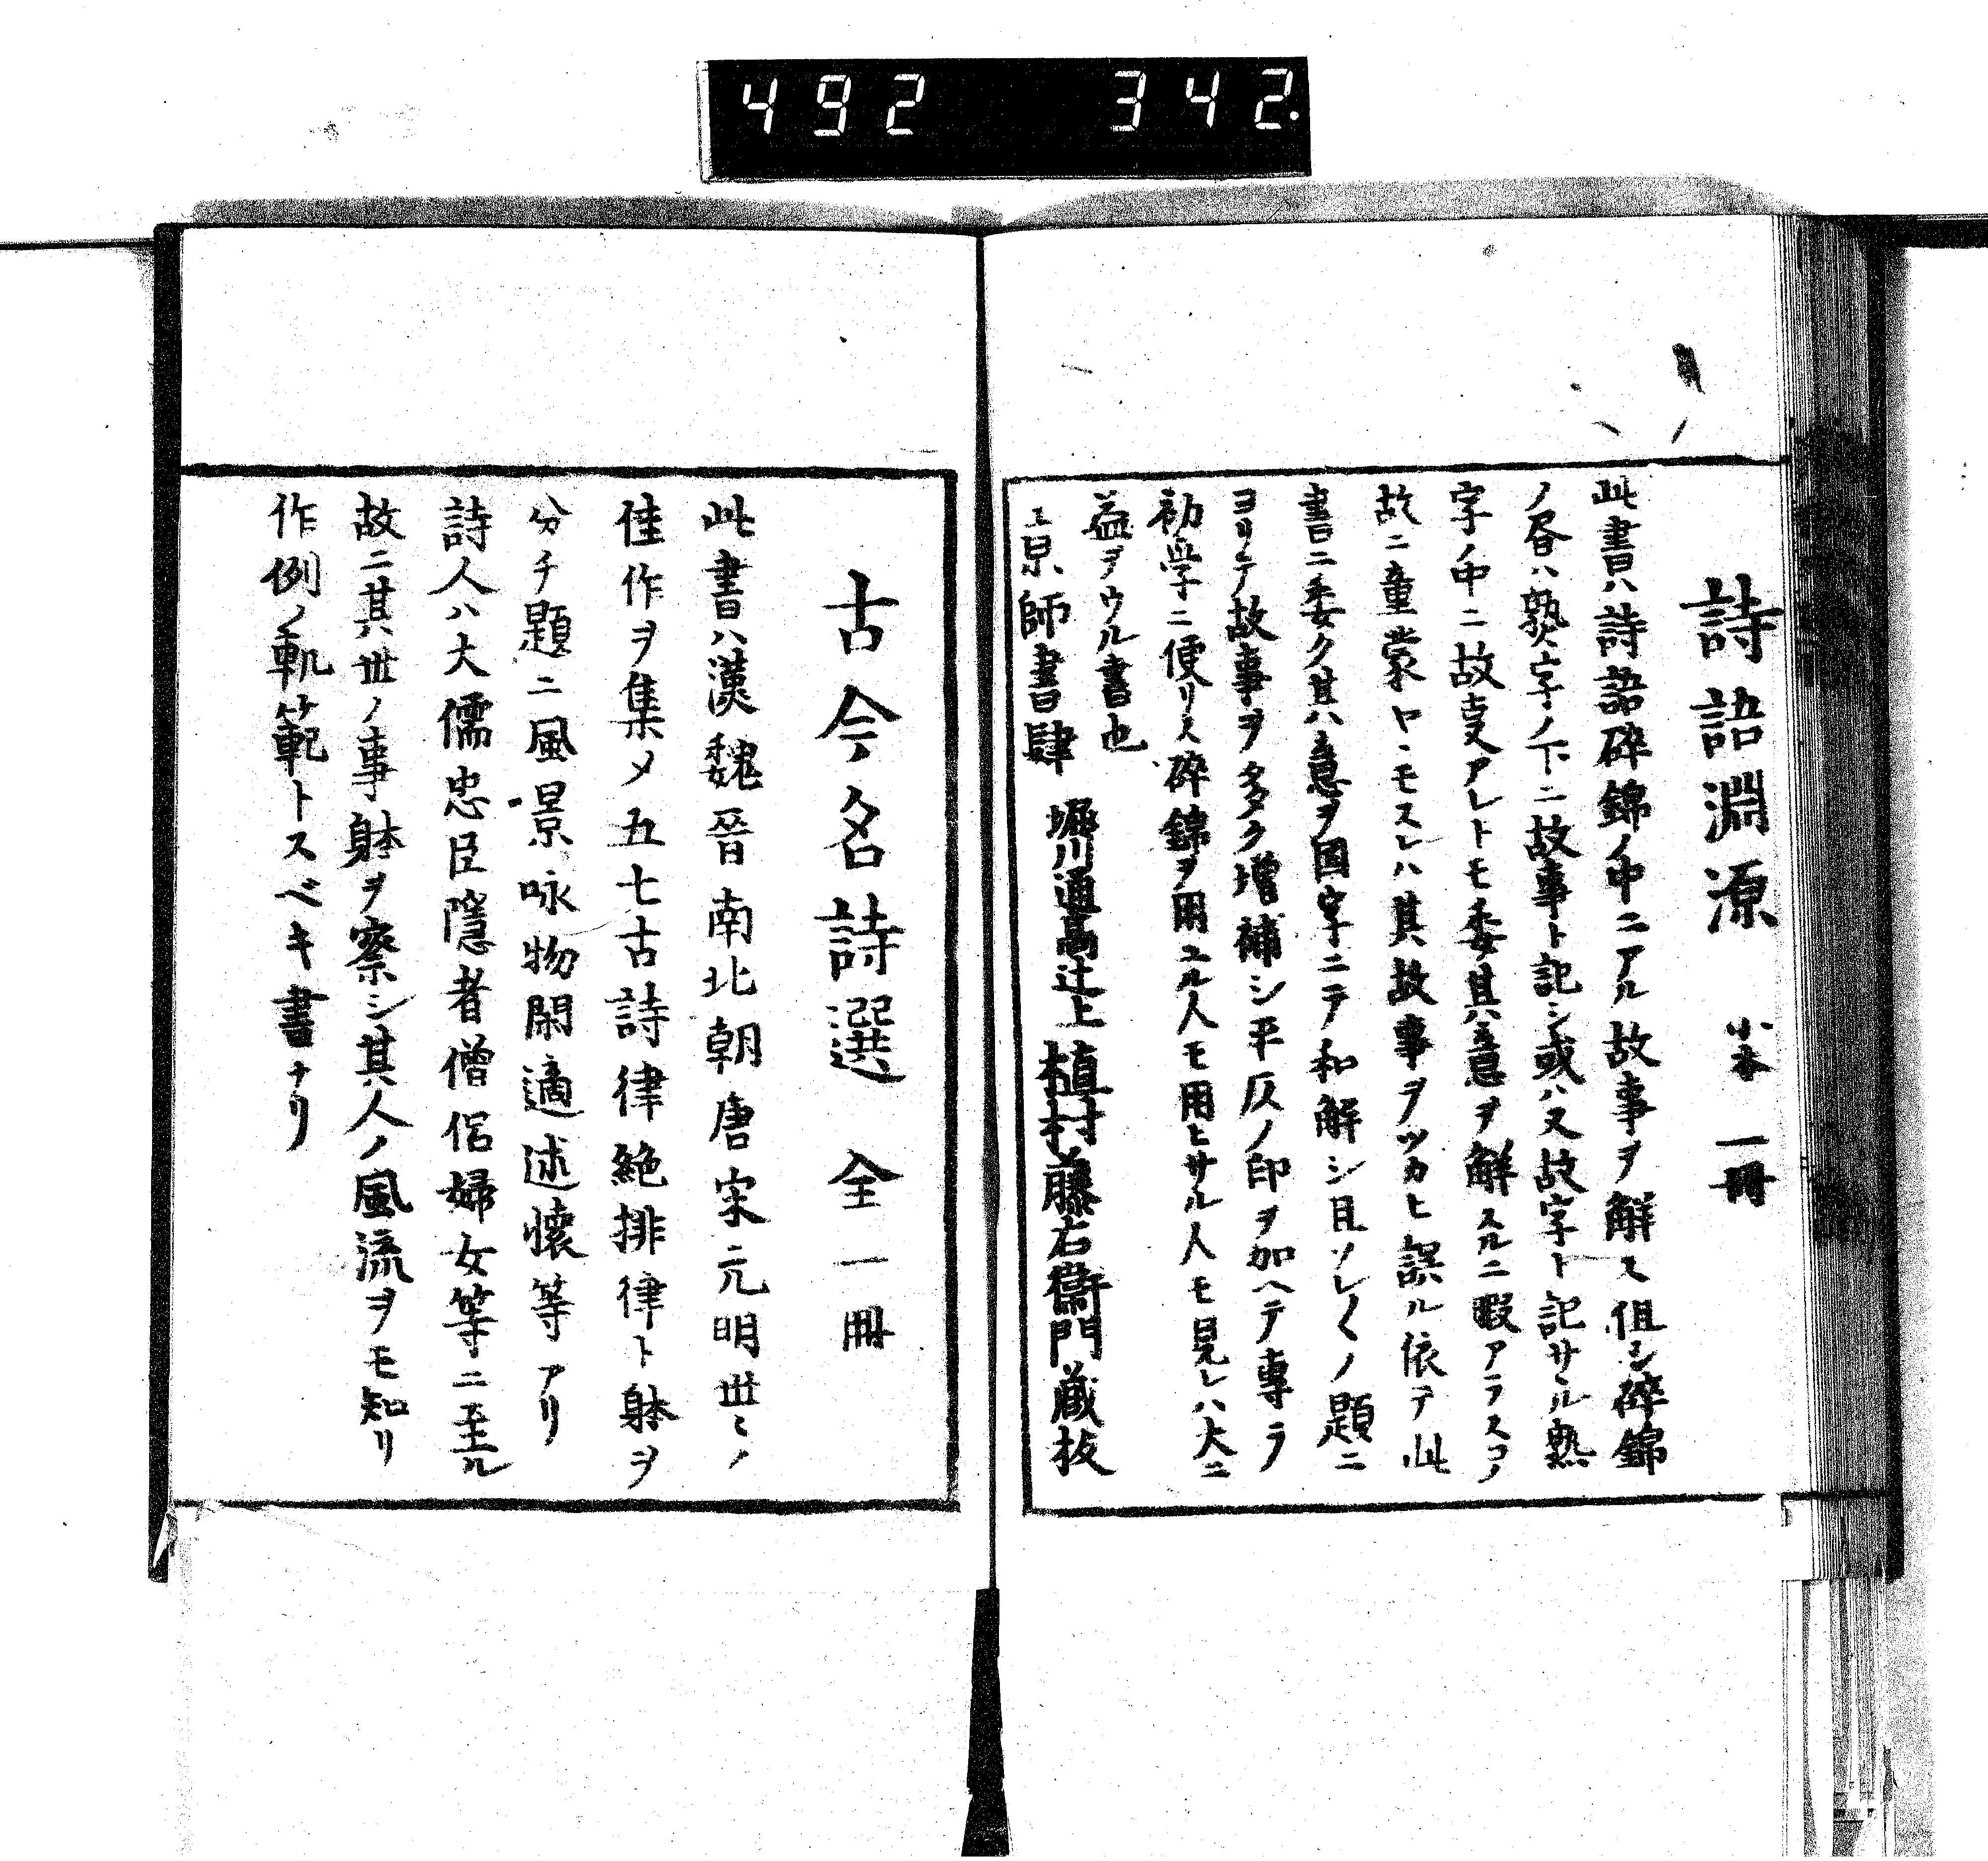 492 342.
詩語淵源 小本一冊
此書ハ詩語碎錦ノ中ニアル故事ヲ解ス但シ碎錦
ノ昏ハ熟字ノ下ニ故事ト記シ或ハ又故字ト記サル熟
字ノ中ニ故叓アレトモ委其意ヲ解スルニ暇アラスコノ
故ニ童蒙ヤヽモスレハ其故事ヲツカヒ誤ル依テ此
書ニ委ク其意ヲ国字ニテ和解シ且ソレ〱ノ題ニ
ヨリテ故事ヲ多ク增補シ平仄ノ印ヲ加ヘテ專ラ
初学ニ便リス碎錦ヲ用ユル人モ用ヒサル人モ見レハ大ニ
益ヲウル書也
京師書肆 堀川通高辻上 植村藤右衛門蔵板
古今名詩選 全一冊
此書ハ漢魏晉南北朝唐宋元明世〻ノ
佳作ヲ集メ五七古詩律絶排律ト躰ヲ
分チ題ニ風景咏物閑適述懐等アリ
詩人ハ大儒忠臣隱者僧侶婦女等ニ至ル
故ニ其世ノ事躰ヲ察シ其人ノ風流ヲモ知リ
作例ノ軌範トスベキ書ナリ